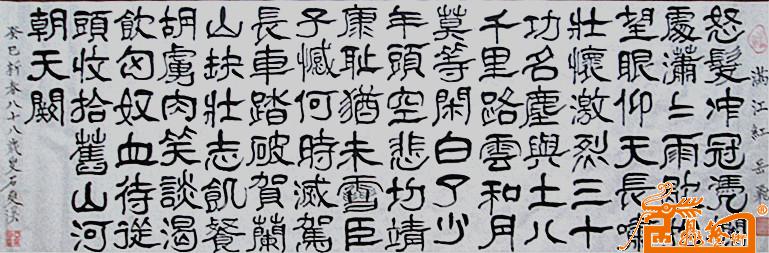 滿江紅 岳飛
怒髮冲冠凴闌
處瀟〻雨歇抬
望眼仰天長嘯
壯懷激烈三十
功名塵與土八
千里路雲和月
莫等閑白了少
年頭空悲切靖
康恥猶未雪臣
子憾何時滅駕
長車踏破賀蘭
山缺壯志飢餐
胡虜肉笑談渴
飲匈奴血待從
頭收拾舊山河
朝天闕
癸巳新春八十八歲叟石